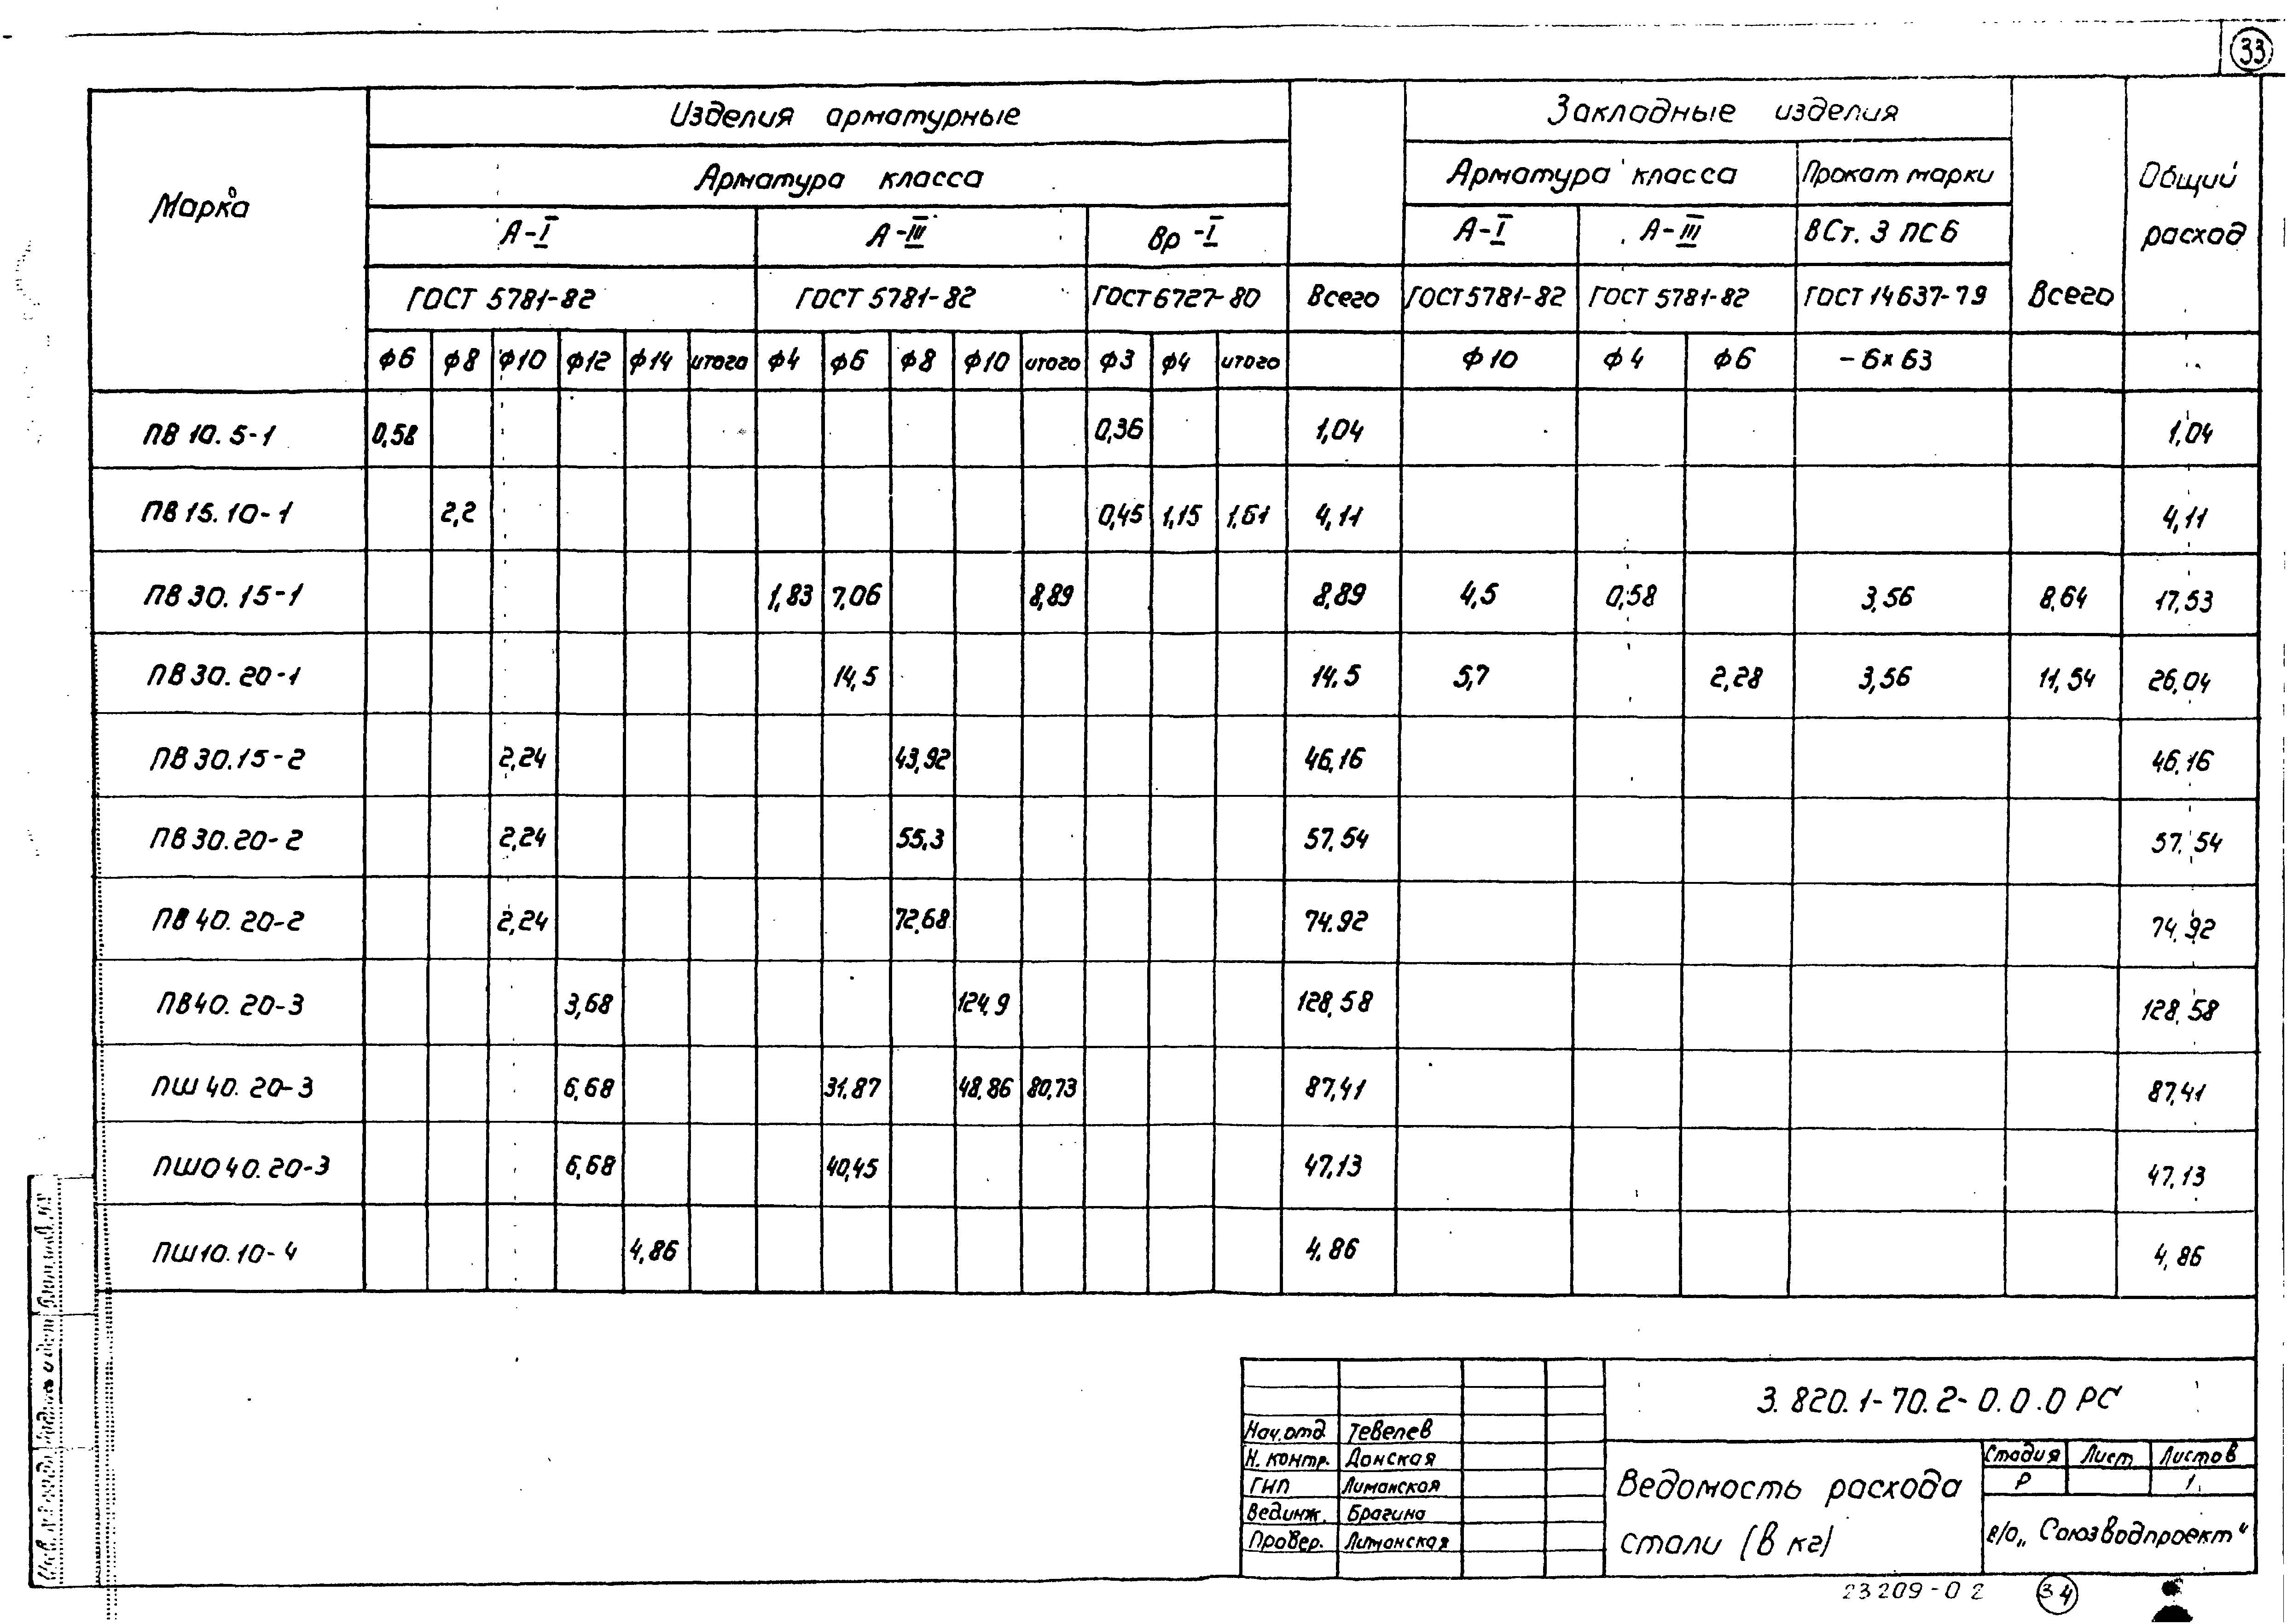 33
Марка
Изделия арматурные
Закладные изделия
Общий расход
Арматура класса
Арматура класса
Прокат марки
А-I
А-III
Вр-I
А-I
А-III
ВСт. 3 пс 6
ГОСТ 5781-82
ГОСТ 5781-82
ГОСТ 6727-80
Всего
ГОСТ 5781-82
ГОСТ 5781-82
ГОСТ 14637-79
Всего
ф6 ф8 ф10 ф12 ф14 итого ф4 ф6 ф8 ф10 итого ф3 ф4 итого ф10 ф4 ф6 -6×63
ПВ 10.5-1 0,58 0,36 1,04 1,04
ПВ 15.10-1 2,2 0,45 1,15 1,61 4,11 4,11
ПВ 30.15-1 1,83 7,06 8,89 8,89 4,5 0,58 3,56 8,64 17,53
ПВ 30.20-1 14,5 14.5 5,7 2,28 3,56 11,54 26,04
ПВ 30.15-2 2,24 43,92 46,16 46,16
ПВ 30.20-2 2,24 55,3 57,54 57,54
ПВ 40.20-2 2,24 72,68 74.92 74,92
ПВ 40.20-3 3,68 124,9 128,58 128,58
ПШ 40.20-3 6,68 31,87 48,86 80,73 87,41 87,41
ПШО 40.20-3 6,68 40,45 47,13 47,13
ПШ 10.10-4 4,86 4,86 4,86
3.820.1-70.2-0.0.0 РС
Нач.отд. Тевелев
Н. контр. Донская
ГИП Лиманская
Вед.инж. Брагина
Провер. Лиманская
Ведомость расхода
стали (в кг)
Стадия Лист Листов
Р 1
в/о „Союзводпроект"
23209-02
34